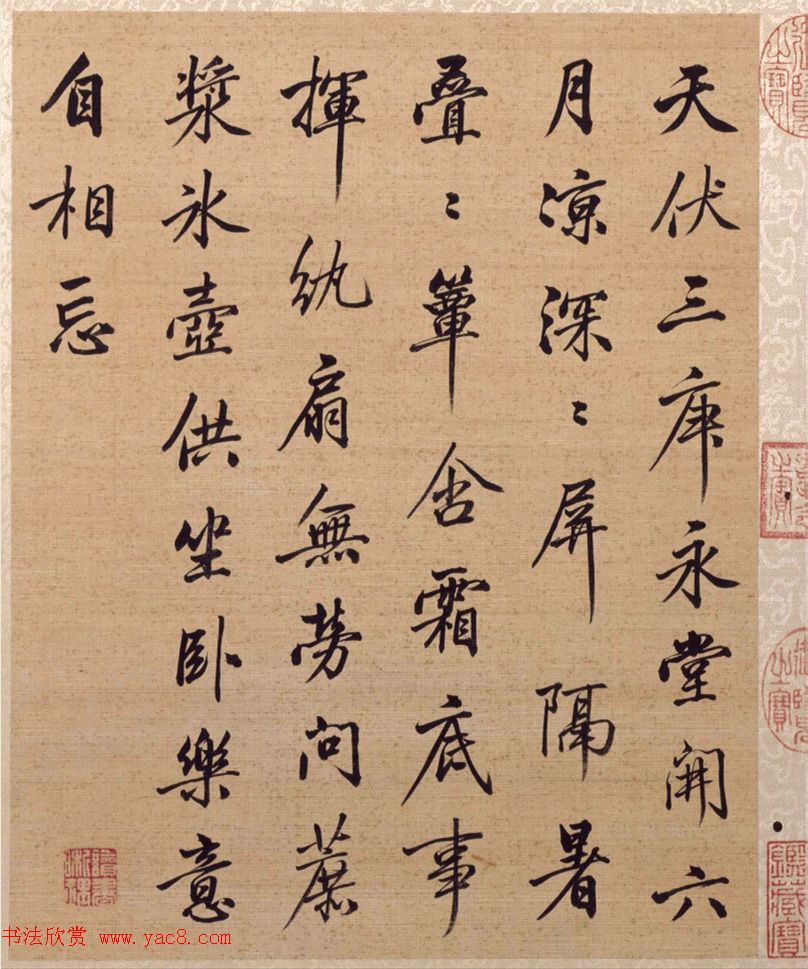 天伏三庚永堂開六
月凉深〻屏隔暑
疊〻簟含霜底事
揮紈扇無勞問蔗
漿氷壺供坐卧樂意
自相忘
之寶
鑑藏寶
书法欣赏 www.yac8.com